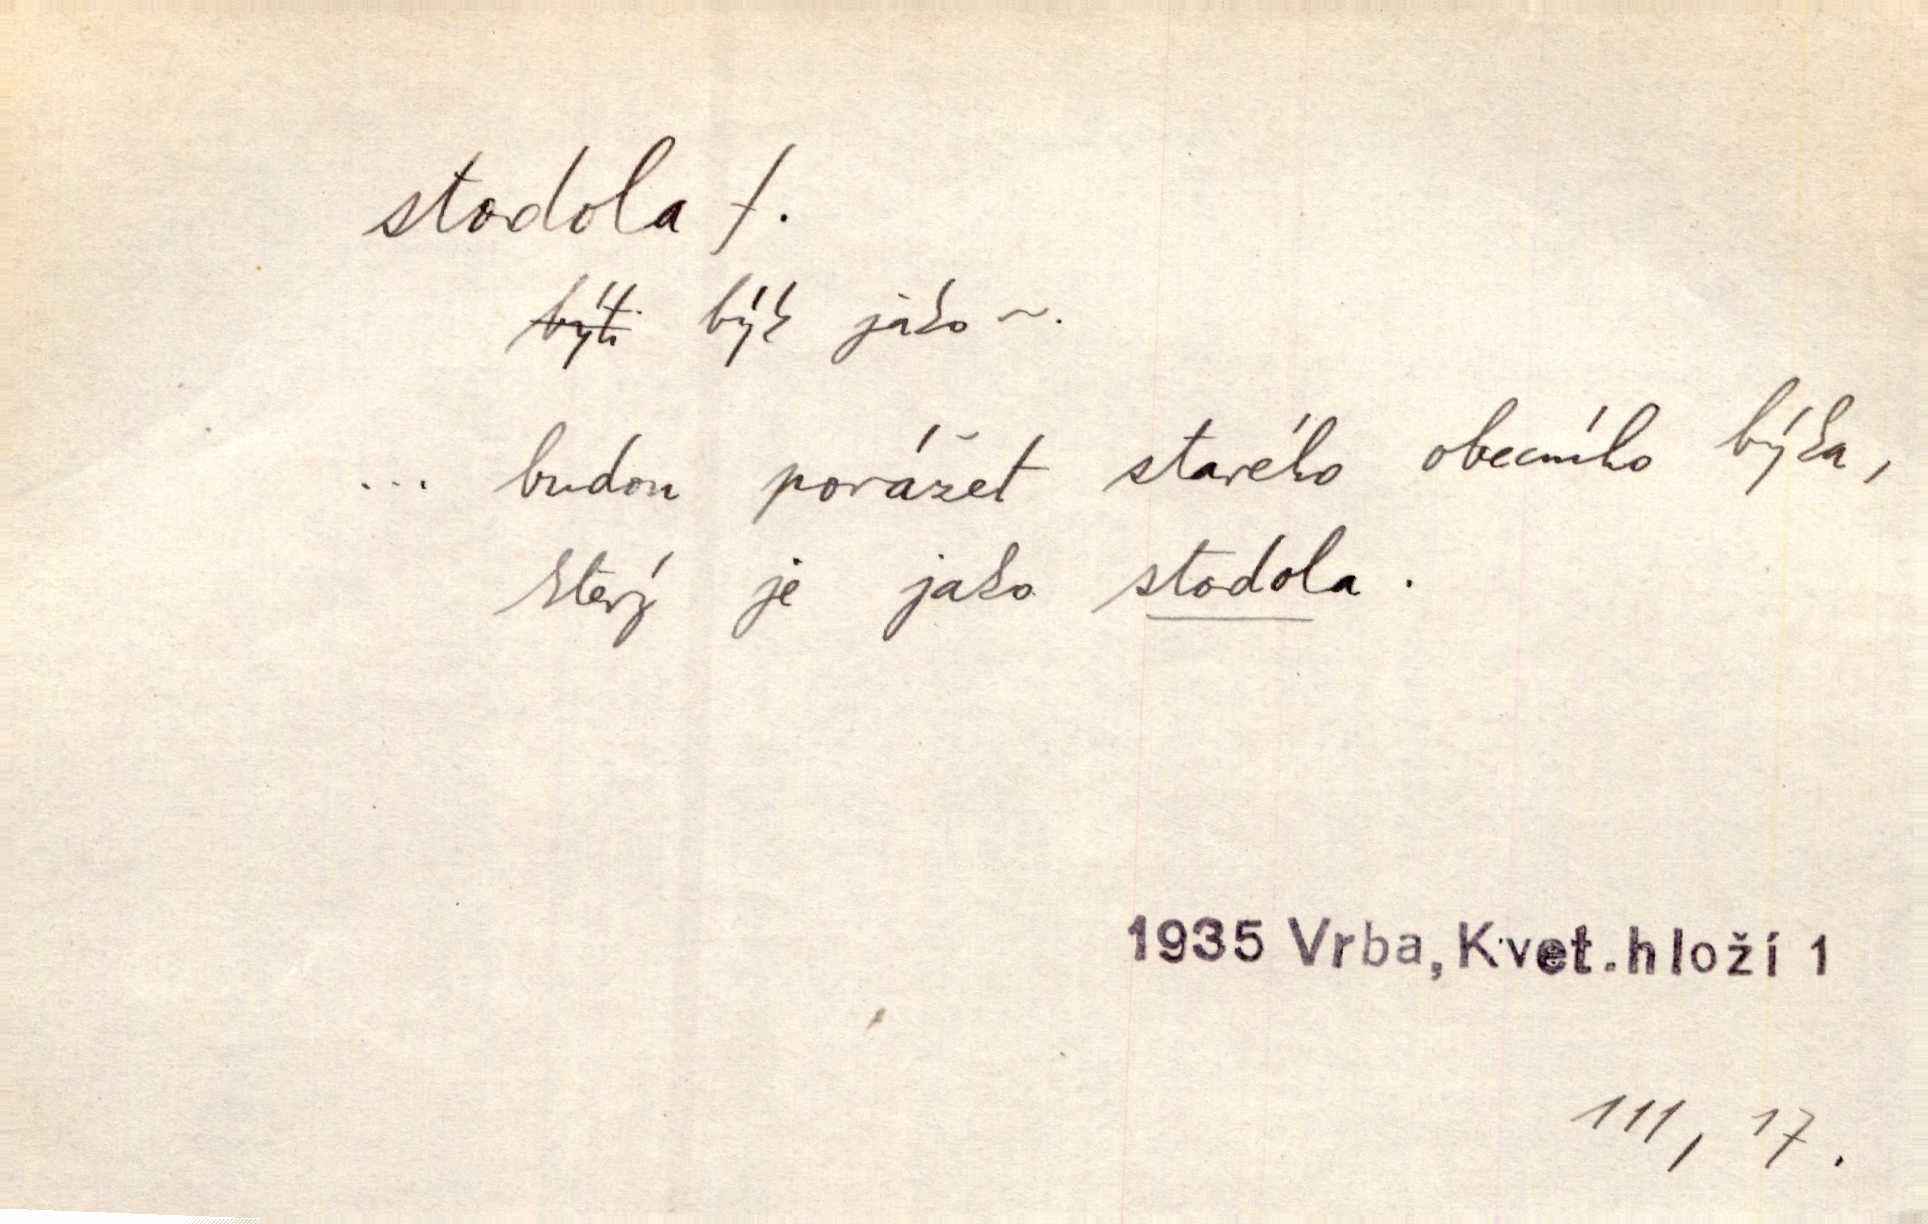 stodola f.
býti býk jako ~.
... budou porážet starého obecního býka,
který je jako stodola.
1935 Vrba, Kvet. hloží 1
111, 17.